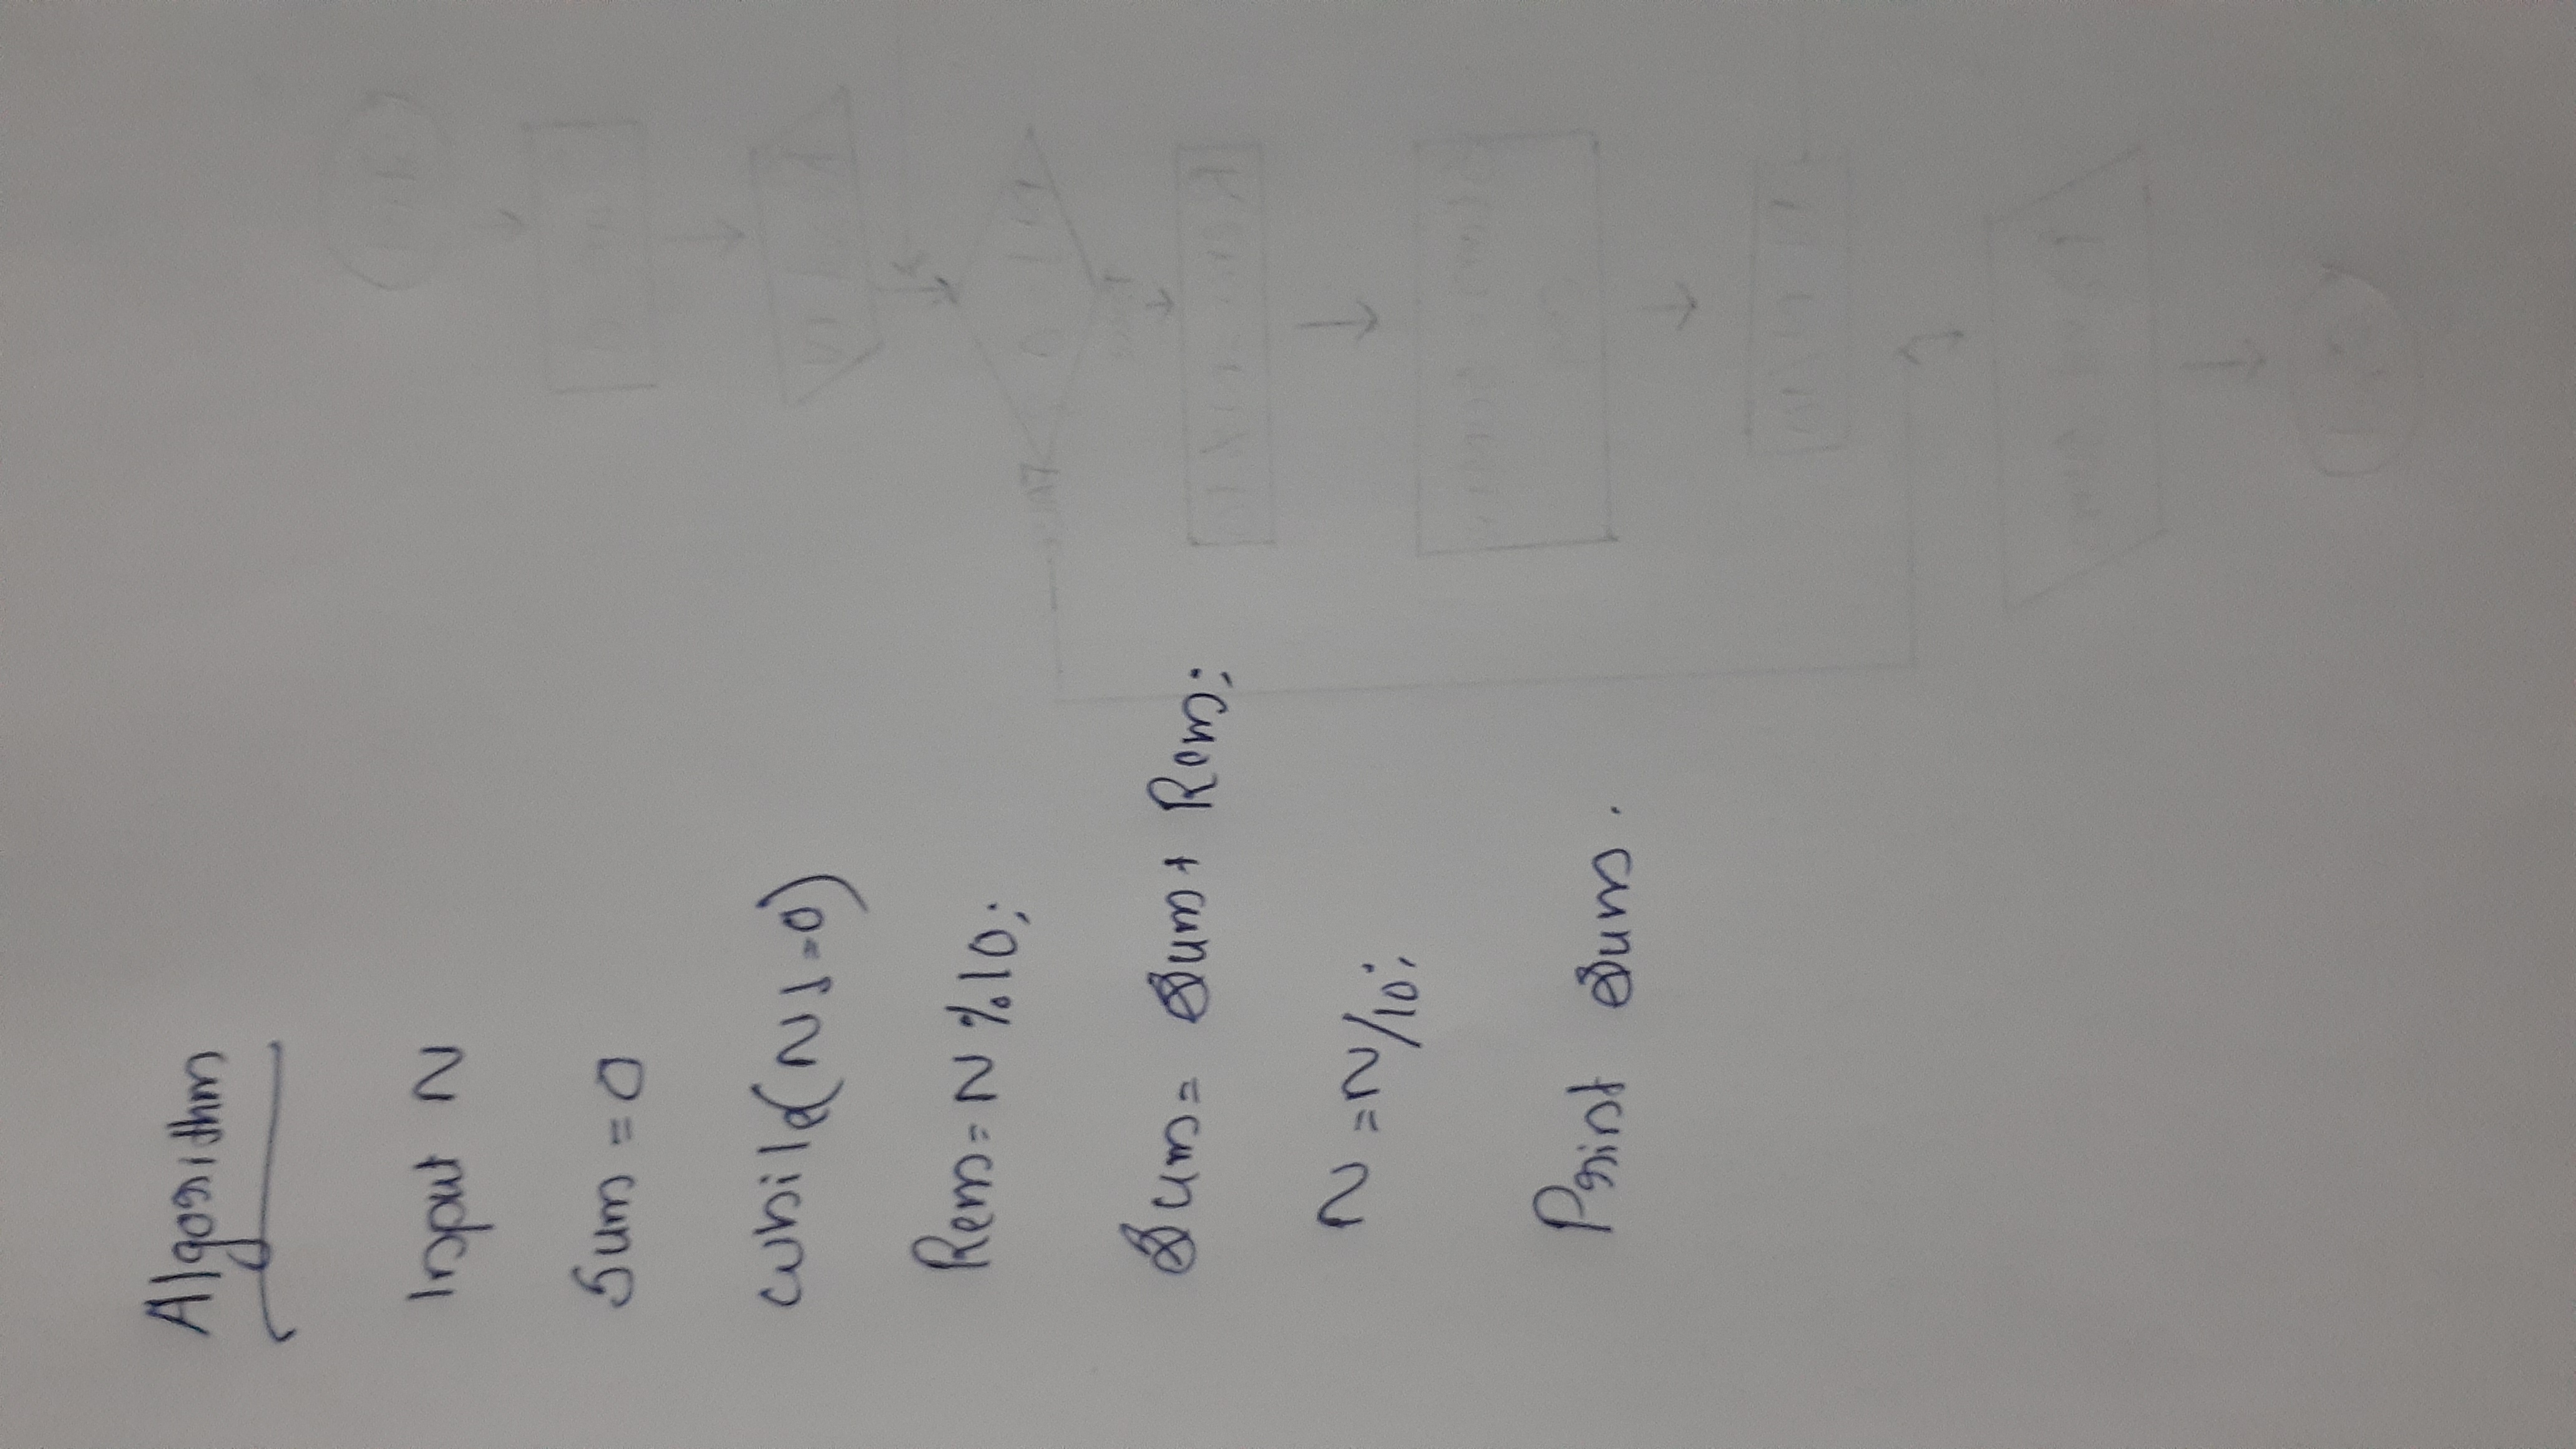 Algorithm
Input N
Sum = 0
while(N!=0)
Rem = N % 10;
Sum = Sum + Rem;
N = N/10;
Print Sum.